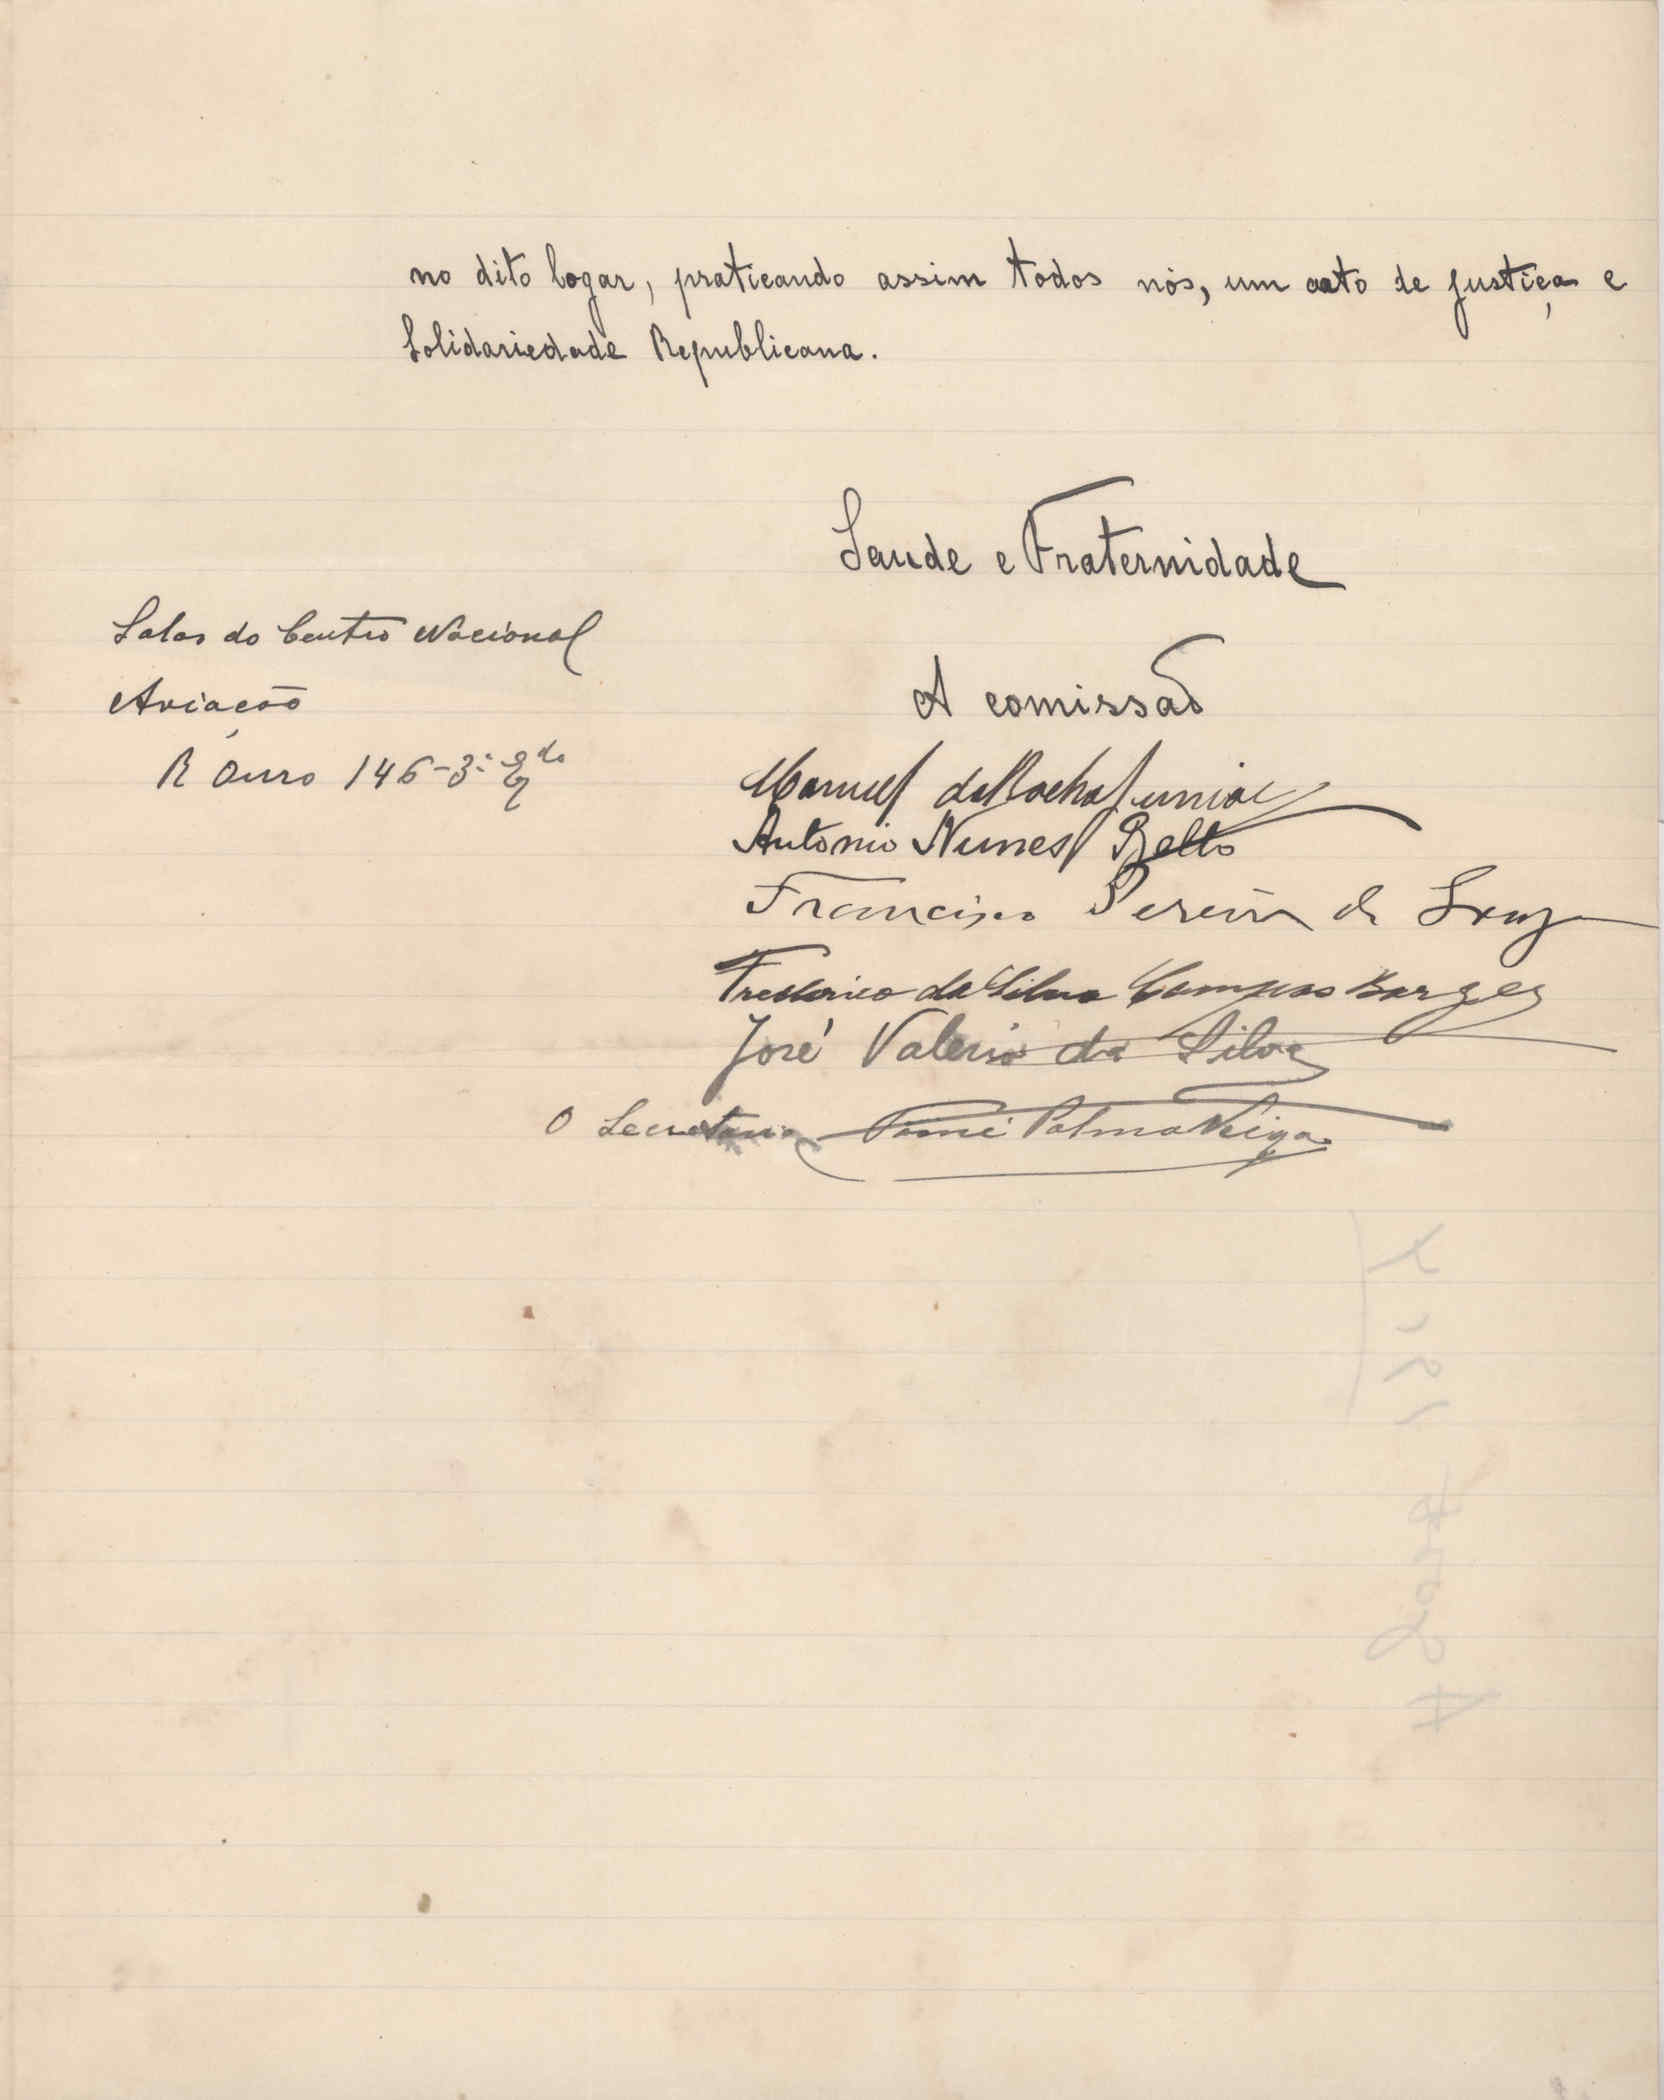 no dito logar, praticando assim todos nós, um acto de justiça e
Solidariedade Republicana.
Saude e Fraternidade
Salas do Centro Nacional
Aviação
R Ouro 146-3º Eqdo
A comissão
Manuel da Rocha Junior
Antonio Nunes Belto
Francisco Pereira de Souza
Frederico da Silva Campos Borges
José Valerio da Silva
O Secretario Tomé Palma Veiga